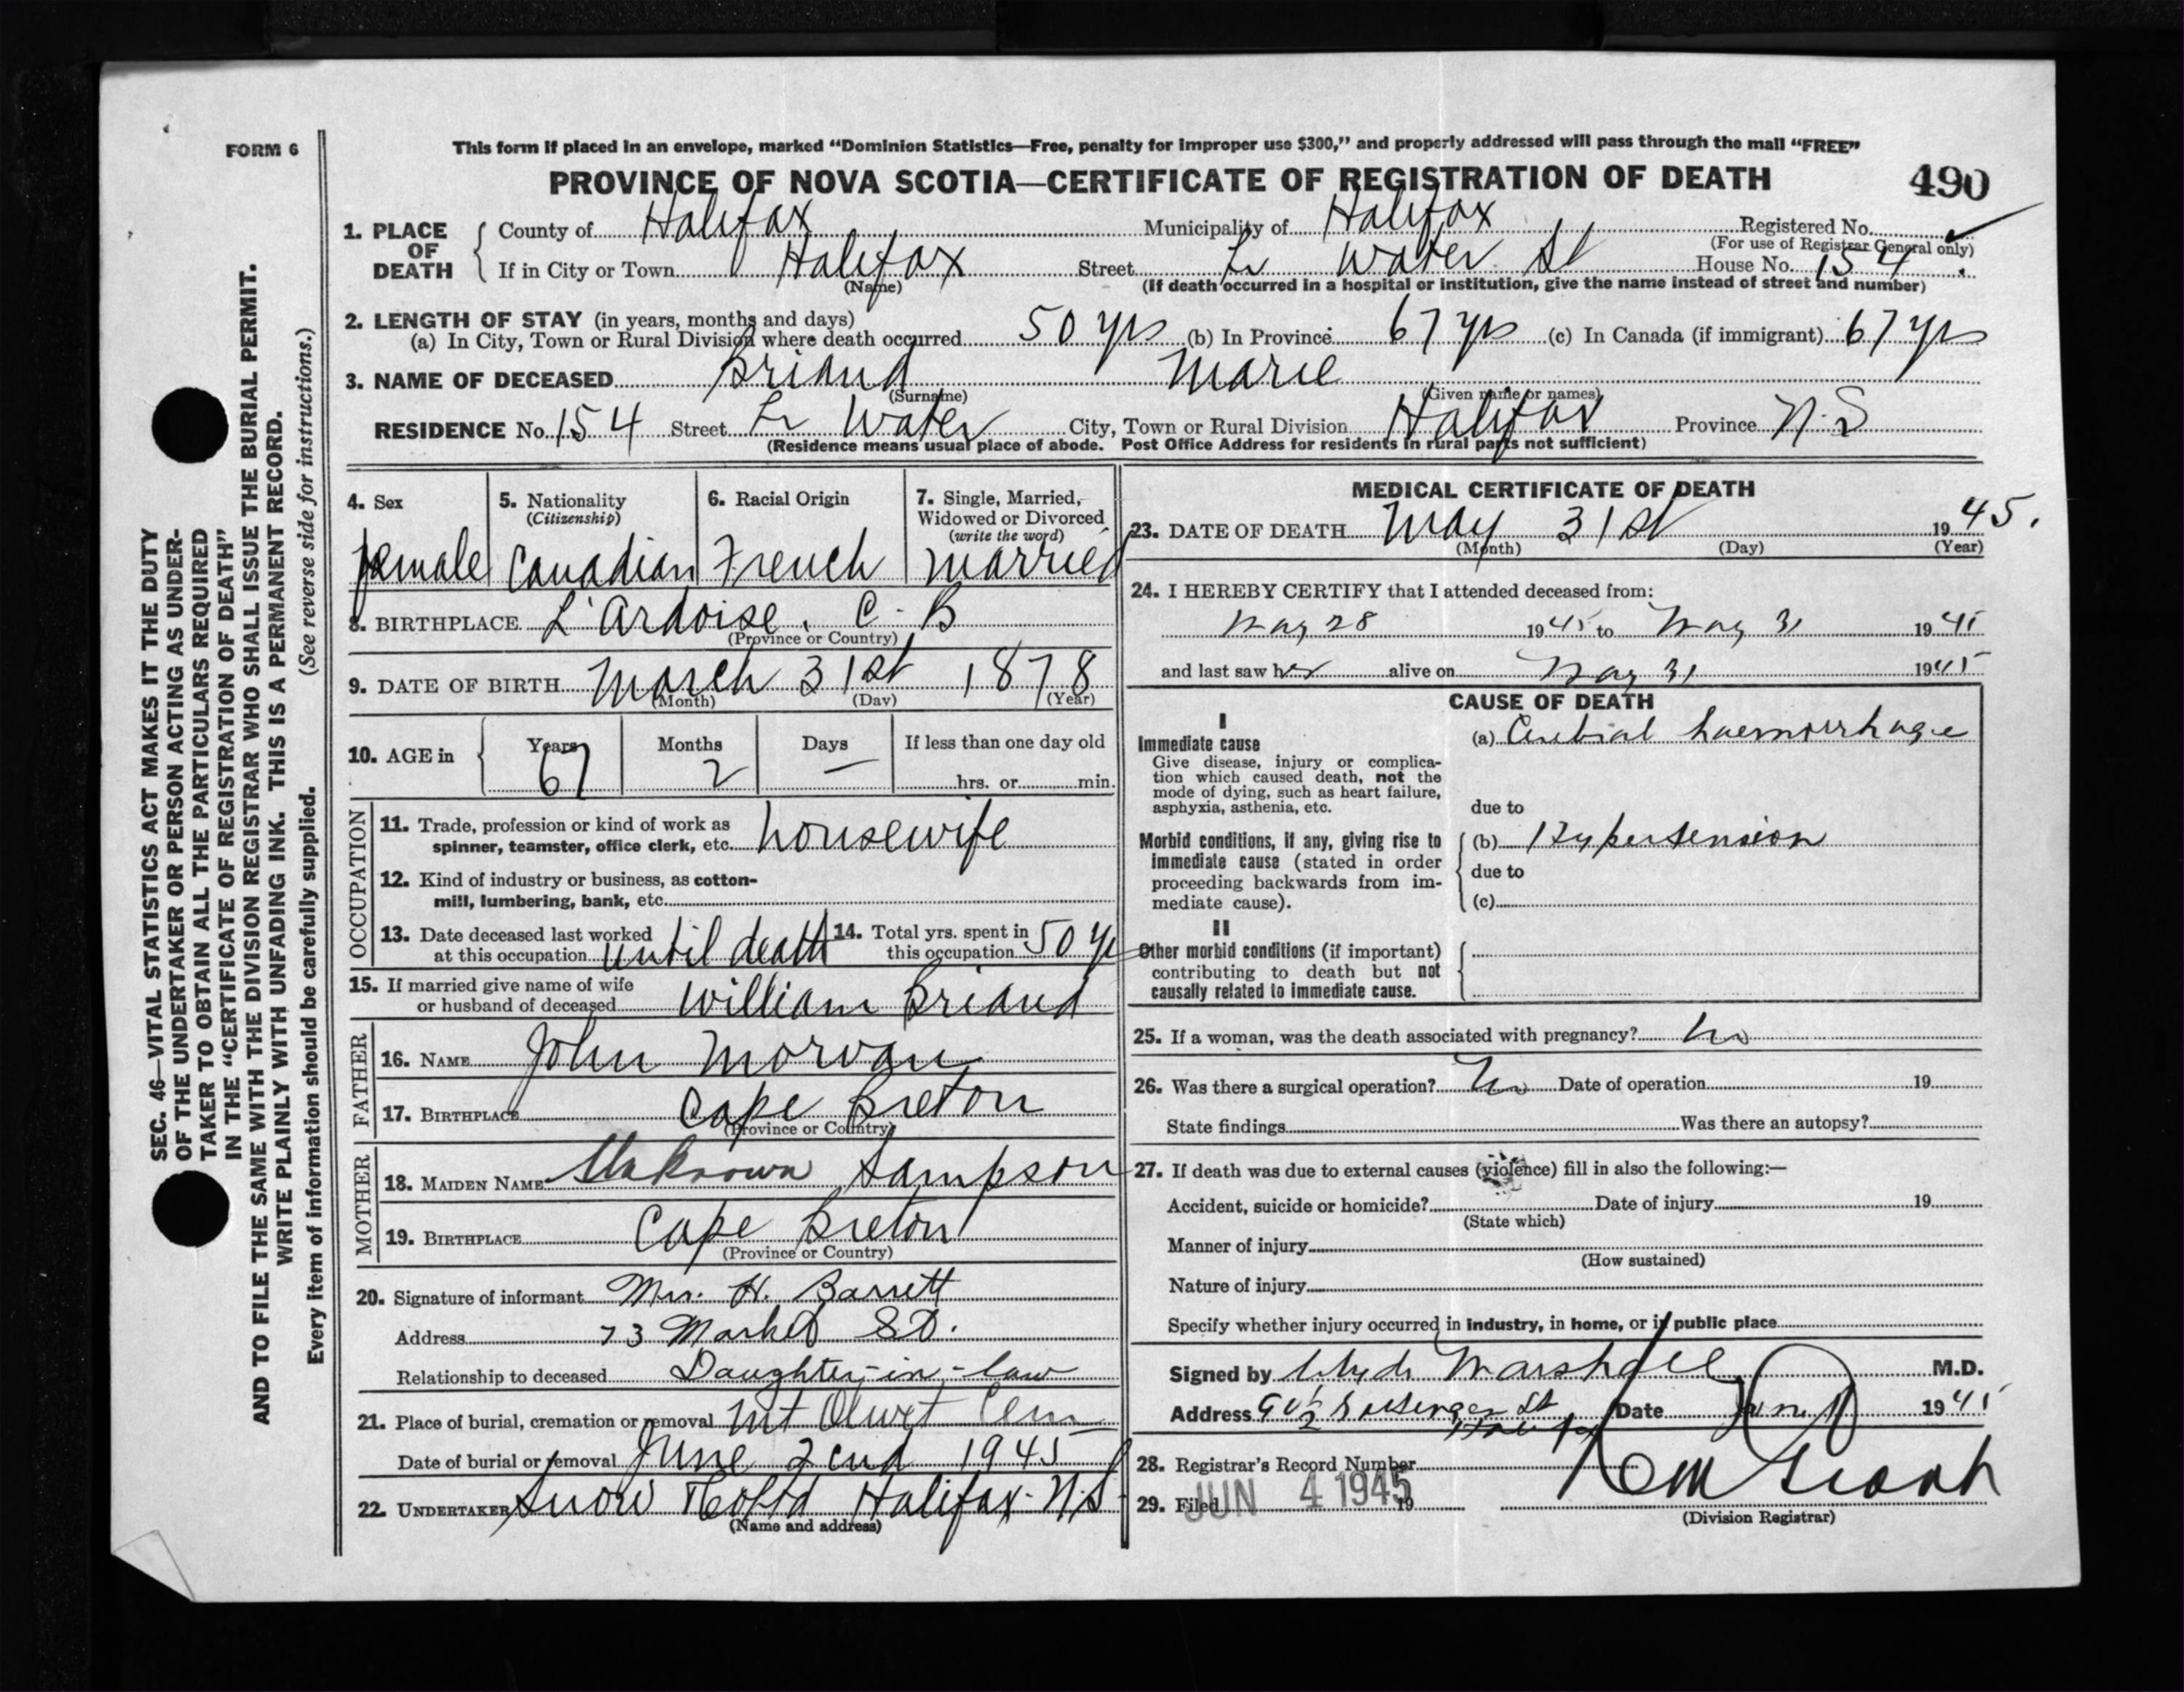 FORM 6
This form if placed in an envelope, marked “Dominion Statistics—Free, penalty for improper use $300,” and properly addressed will pass through the mail “FREE”
PROVINCE OF NOVA SCOTIA—CERTIFICATE OF REGISTRATION OF DEATH
490
1. PLACE OF DEATH
County of Halifax Municipality of Halifax Registered No.
(For use of Registrar General only)
If in City or Town Halifax Street Lr Water St House No. 154
(Name) (If death occurred in a hospital or institution, give the name instead of street and number)
2. LENGTH OF STAY (in years, months and days)
(a) In City, Town or Rural Division where death occurred 50 yrs (b) In Province 67 yrs (c) In Canada (if immigrant) 67 yrs
3. NAME OF DECEASED Briand Marie
(Surname) (Given name or names)
RESIDENCE No. 154 Street Lr Water City, Town or Rural Division Halifax Province N.S
(Residence means usual place of abode. Post Office Address for residents in rural parts not sufficient)
4. Sex
female
5. Nationality
(Citizenship)
Canadian
6. Racial Origin
French
7. Single, Married, Widowed or Divorced
(write the word)
married
8. BIRTHPLACE L'Ardoise. C-B
(Province or Country)
9. DATE OF BIRTH March 31st 1878
(Month) (Day) (Year)
10. AGE in
Years 67
Months 2
Days —
If less than one day old
hrs. or min.
OCCUPATION
11. Trade, profession or kind of work as
spinner, teamster, office clerk, etc. housewife
12. Kind of industry or business, as cotton-
mill, lumbering, bank, etc.
13. Date deceased last worked
at this occupation until death
14. Total yrs. spent in
this occupation 50 yrs
15. If married give name of wife
or husband of deceased William Briand
FATHER
16. NAME John Morvan
17. BIRTHPLACE Cape Breton
(Province or Country)
MOTHER
18. MAIDEN NAME Unknown Sampson
19. BIRTHPLACE Cape Breton
(Province or Country)
20. Signature of informant Mrs. H. Barrett
Address 73 Market St.
Relationship to deceased Daughter-in-law
21. Place of burial, cremation or removal Mt Olivet Cem
Date of burial or removal June 2cnd 1945
22. UNDERTAKER Snow & Co Ltd Halifax-N.S
(Name and address)
MEDICAL CERTIFICATE OF DEATH
23. DATE OF DEATH May 31st 1945.
(Month) (Day) (Year)
24. I HEREBY CERTIFY that I attended deceased from:
May 28 1945 to May 31 1945
and last saw her alive on May 31 1945
CAUSE OF DEATH
I
Immediate cause
Give disease, injury or complica-
tion which caused death, not the
mode of dying, such as heart failure,
asphyxia, asthenia, etc.
(a) Cerebral haemorrhage
due to
Morbid conditions, if any, giving rise to
immediate cause (stated in order
proceeding backwards from im-
mediate cause).
(b) Hypertension
due to
(c)
II
Other morbid conditions (if important)
contributing to death but not
causally related to immediate cause.
25. If a woman, was the death associated with pregnancy? No
26. Was there a surgical operation? No Date of operation 19
State findings Was there an autopsy?
27. If death was due to external causes (violence) fill in also the following:—
Accident, suicide or homicide? Date of injury 19
(State which)
Manner of injury
(How sustained)
Nature of injury
Specify whether injury occurred in industry, in home, or in public place
Signed by Clyde Marshall M.D.
Address St Halifax Date June 1 1945
28. Registrar's Record Number
29. Filed JUN 4 1945 19
(Division Registrar)
SEC. 46—VITAL STATISTICS ACT MAKES IT THE DUTY
OF THE UNDERTAKER OR PERSON ACTING AS UNDER-
TAKER TO OBTAIN ALL THE PARTICULARS REQUIRED
IN THE “CERTIFICATE OF REGISTRATION OF DEATH”
AND TO FILE THE SAME WITH THE DIVISION REGISTRAR WHO SHALL ISSUE THE BURIAL PERMIT.
WRITE PLAINLY WITH UNFADING INK. THIS IS A PERMANENT RECORD.
Every item of information should be carefully supplied. (See reverse side for instructions.)